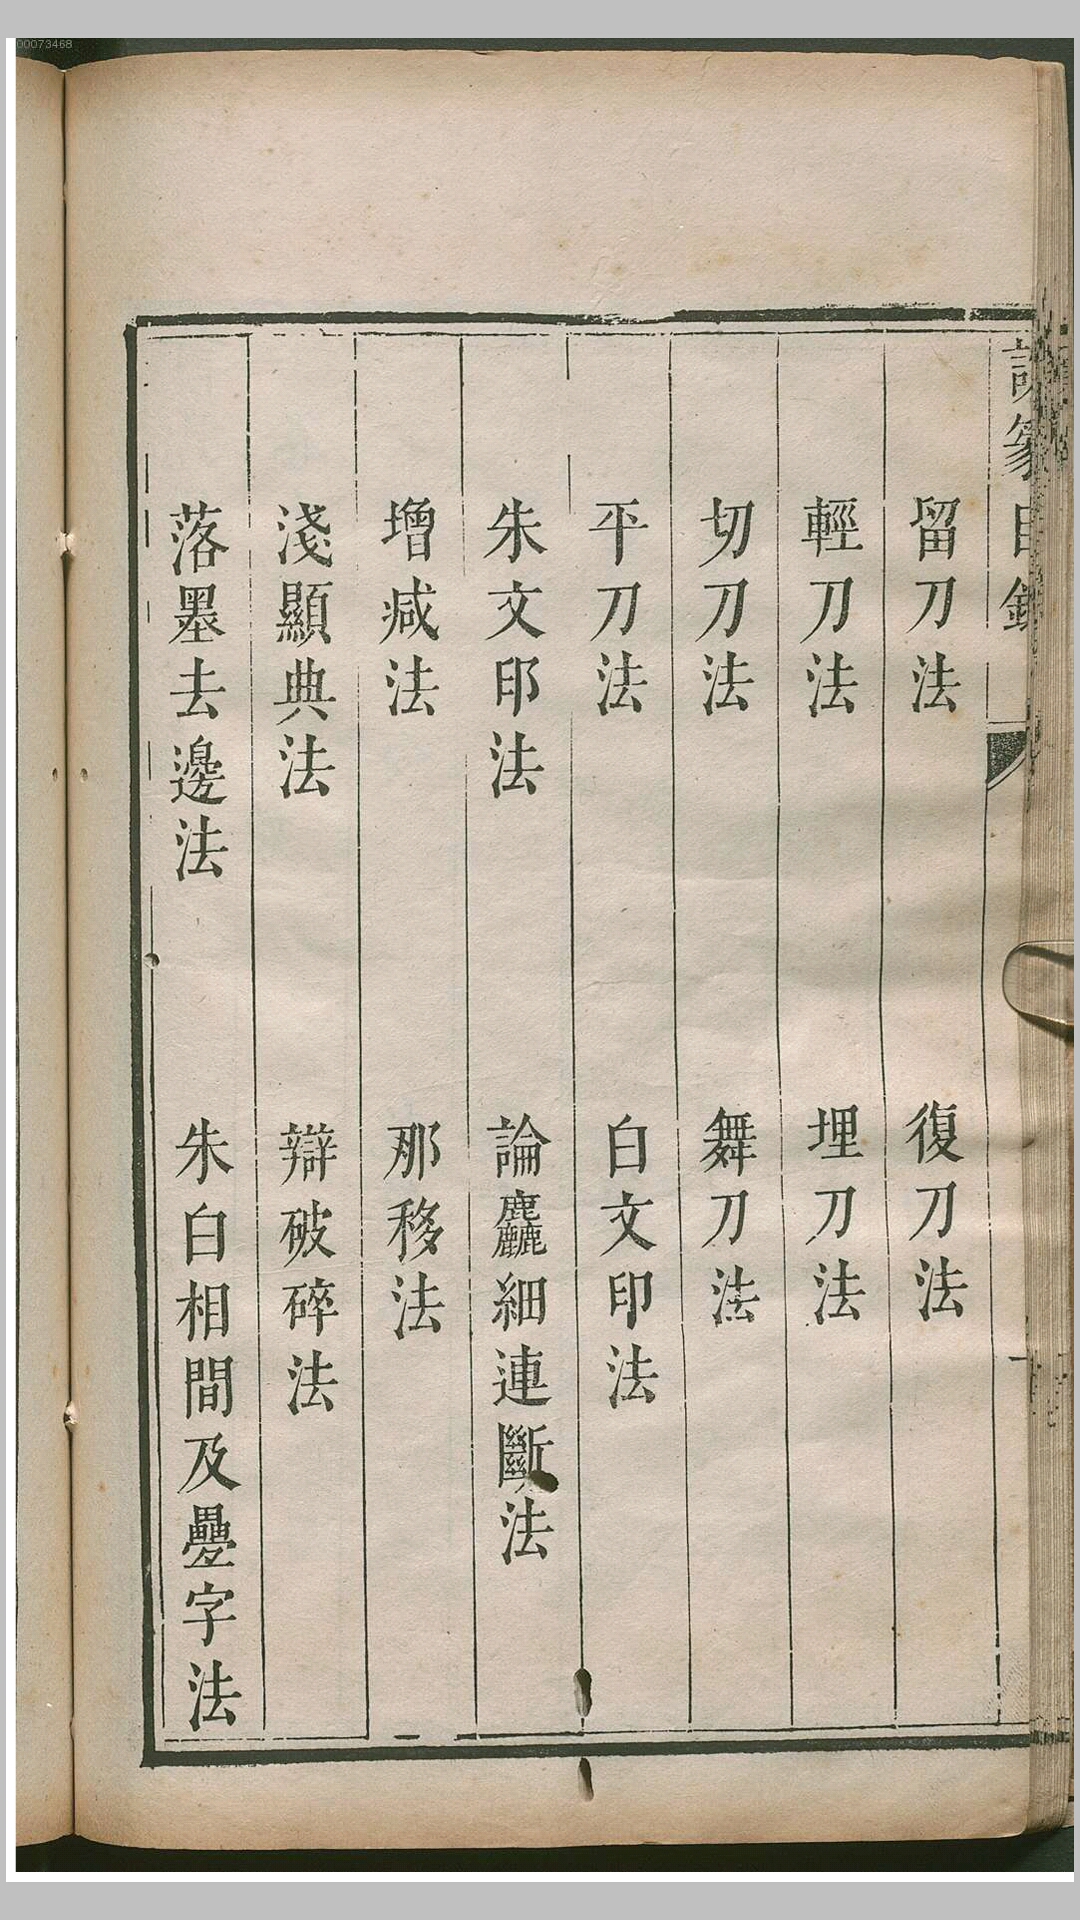 00073468
篆目錄
留刀法 復刀法
輕刀法 埋刀法
切刀法 舞刀法
平刀法 白文印法
朱文印法 論麤細連斷法
增减法 那移法
淺顯典法 辯破碎法
落墨去邊法 朱白相間及疊字法